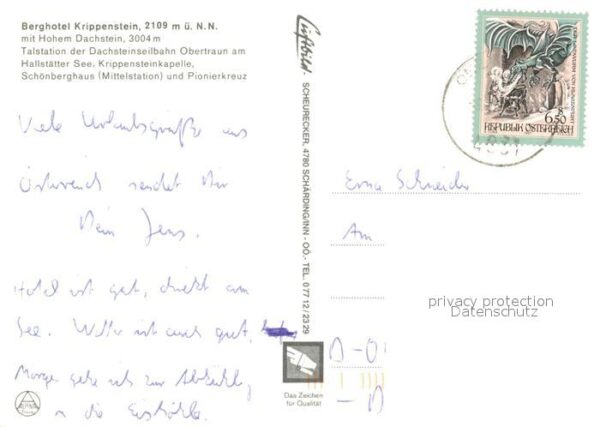 Berghotel Krippenstein, 2109 m ü. N.N.
mit Hohem Dachstein, 3004 m
Talstation der Dachsteinseilbahn Obertraun am
Hallstätter See, Krippensteinkapelle,
Schönberghaus (Mittelstation) und Pionierkreuz
Viele Urlaubsgrüße aus
Österreich sendet Dir
Dein Jens.
Hotel ist gut, direkt am
See. Wetter ist auch gut,
Morgen gehe ich zur
in die Eishöhle.
Luftbild · SCHEURECKER, 4780 SCHÄRDING/INN - OÖ. - TEL. 07712/2329
Das Zeichen
für Qualität
6.50
REPUBLIK ÖSTERREICH
4831
Erna Schneider
Am
privacy protection
Datenschutz
D-0